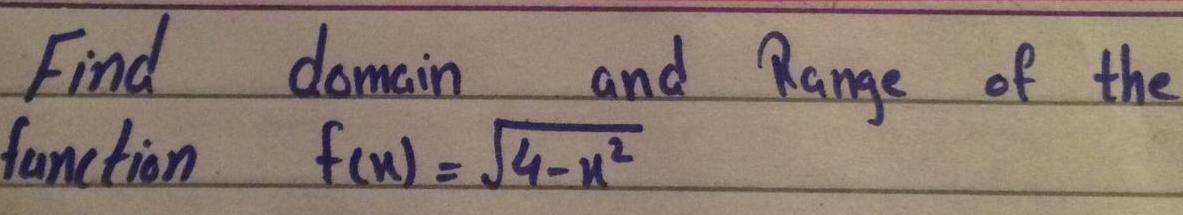 Find domain and Range of the
function f(x) = √4-x²